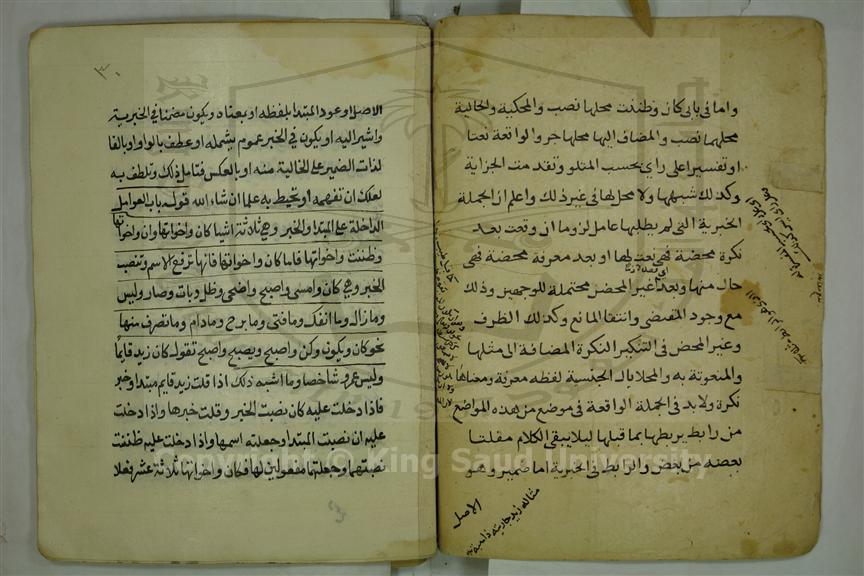 واما فى بابى كان وظننت محلها نصب والمحكية والحالية
محلهما نصب والمضاف اليها محلها جر والواقعة نعتا
او تفسيرا على راى بحسب المتلو وتقدمت الجزاية
وكذلك شبهها ولا محل لها فى غير ذلك واعلم ان الجملة
الخبرية التى لم يطلبها عامل لزوما ان وقعت بعد
نكرة محضة فهى نعت لها او بعد معرفة محضة فهى
حال منها وبعد غير المحض محتملة للوجهين وذلك
مع وجود المقتضى وانتفا المانع وكذلك الظرف
وغير المحض فى التنكير النكرة المضافة الى مثلها
والمنعوتة به والمحلا بال الجنسية لفظه معرفة ومعناها
نكرة ولا بد فى الجملة الواقعة فى موضع من هذه المواضع
من رابط يربطها بما قبلها ليلا يبقى الكلام مفلتا
بعضه من بعض والرابط فى الخبرية اما ضمير وهو
الاصل
مثاله زيد جاريته ذاهبة
٣٠
الاصل او عود المبتدا بلفظه او بمعناه ويكون مضمنا فى الخبرية
واشير اليه او يكون فى الخبر عموم يشمله او عطف بالواو او بالفا
لذات الضمير على الخالية منه او بالعكس فتامل ذلك وتلطف به
لعلك ان تفهمه او تحيط به علما ان شاء الله قوله باب العوامل
الداخلة على المبتدا والخبر وهى ثلاثة اشيا كان واخواتها وان واخواتها
وظننت واخواتها فاما كان واخواتها فانها ترفع الاسم وتنصب
الخبر وهى كان وامسى واصبح واضحى وظل وبات وصار وليس
وما زال وما انفك وما فتى وما برح وما دام وما تصرف منها
نحو كان ويكون وكن واصبح ويصبح واصبح تقول كان زيد قايما
وليس عمرو شاخصا وما اشبه ذلك اذا قلت زيد قايم مبتدا وخبر
فاذا دخلت عليه كان نصبت الخبر وقلت خبرها واذا دخلت
عليه ان نصبت المبتدا وجعلته اسمها واذا دخلت عليه ظننت
نصبتهما وجعلتهما مفعولين لها فكان واخواتها ثلاثة عشر فعلا
Copyright © King Saud University